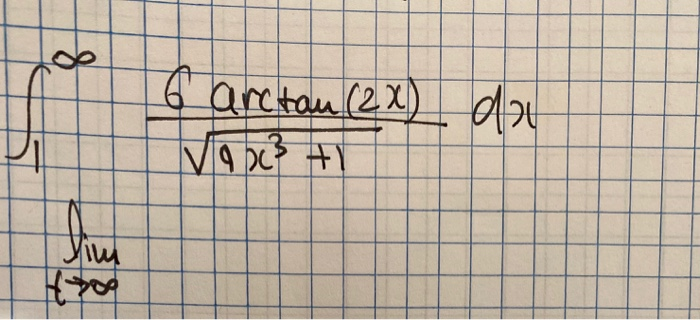 ∫₁^∞ 6 arctan(2x) / √(9x³ + 1) dx
lim t→∞